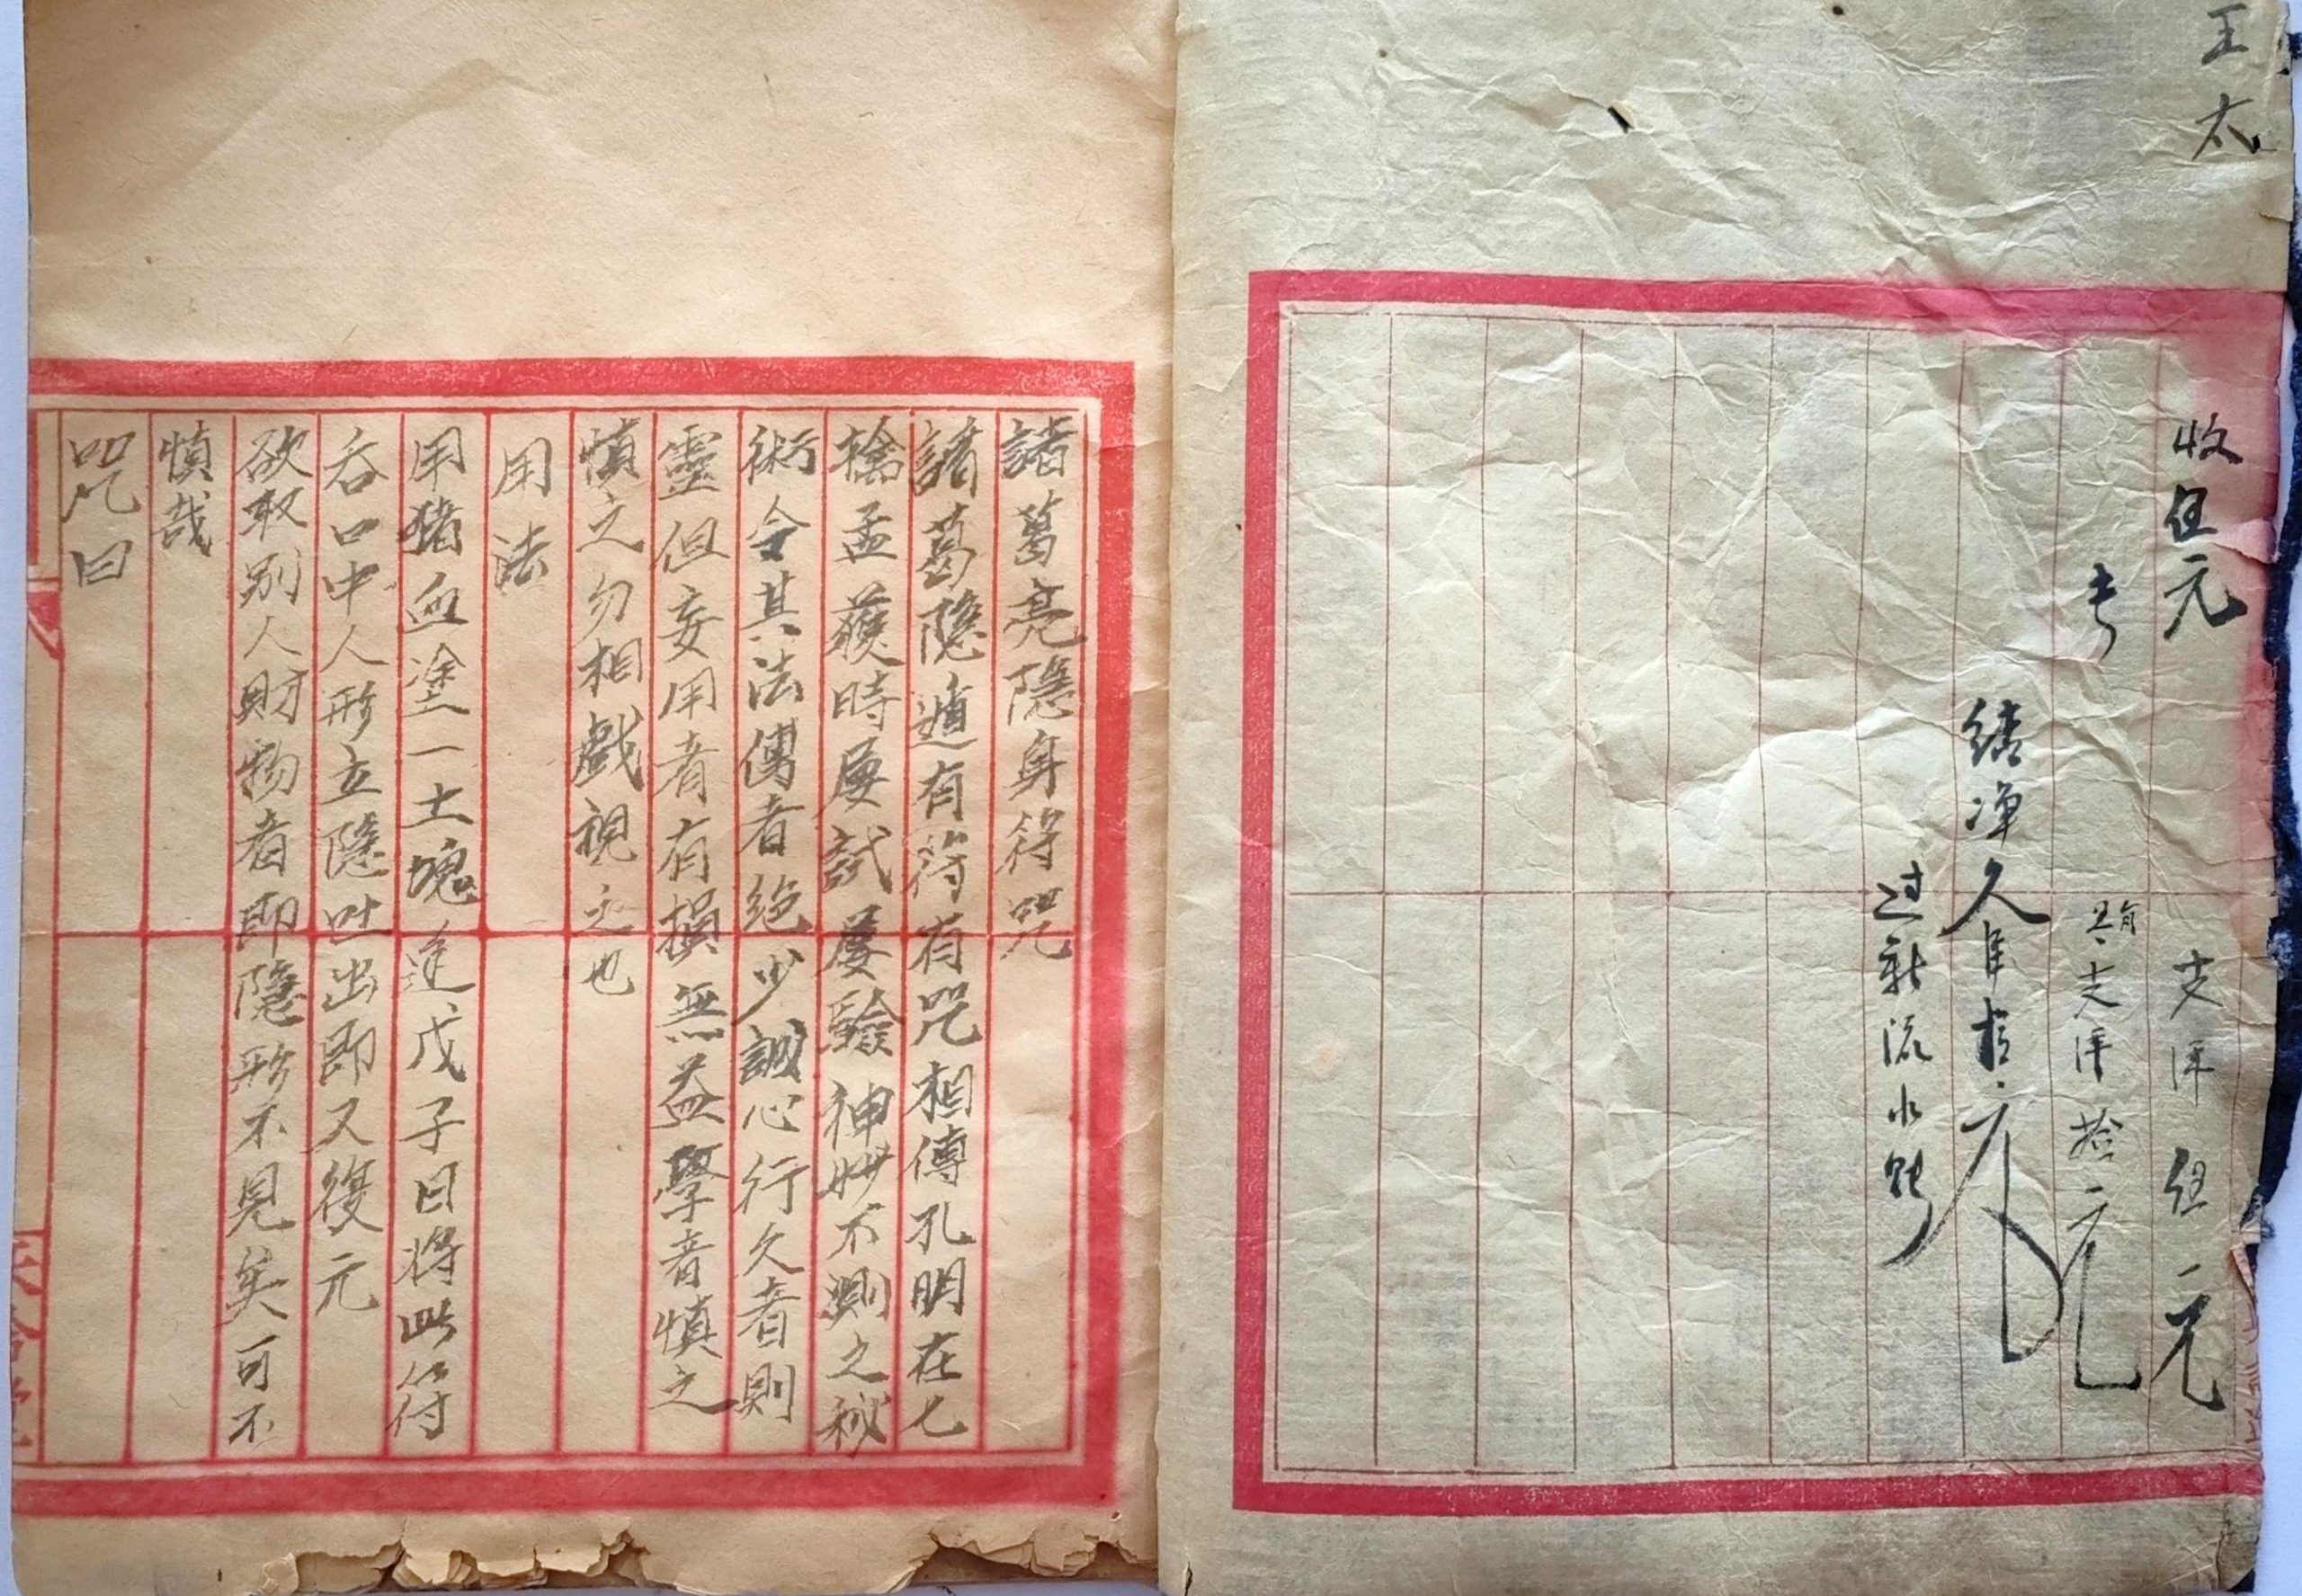 王太
收伍元
支洋伍元
支洋拾元
结净欠
过新流水账
諸葛亮隱身符咒
諸葛隱遁有符有咒相傳孔明在七
擒孟獲時屡試屡驗神妙不測之秘
術今其法傳者絶少誠心行久者則
靈但妄用者有損無益學者慎之
慎之勿相戲視之也
用法
用猪血塗一土塊逢戊子日將此符
吞口中人形立隱吐出即又復元
欲取别人財物者即隱形不見矣可不
慎哉
咒曰